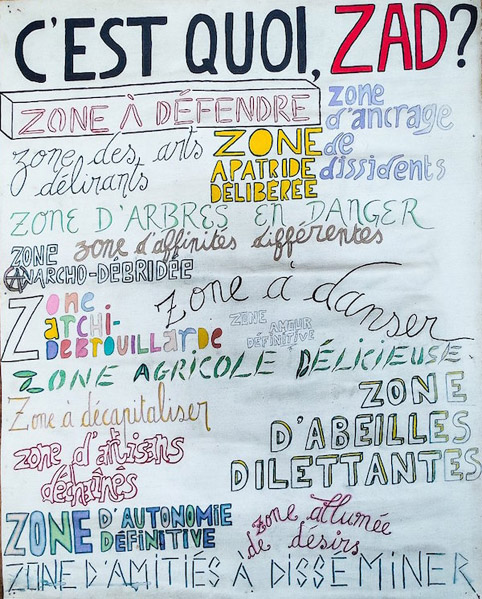 C'EST QUOI, ZAD?
ZONE À DÉFENDRE
zone d'ancrage de dissidents
zone des arts délirants
ZONE APATRIDE DÉLIBÉRÉE
ZONE D'ARBRES EN DANGER
zone d'affinités différentes
ZONE ANARCHO-DÉBRIDÉE
Zone à danser
Zone archi-DEBROUILLARDE
ZONE AMOUR DÉFINITIVE
ZONE AGRICOLE DÉLICIEUSE
Zone à décapitaliser
ZONE D'ABEILLES DILETTANTES
zone d'artisans déchaînés
ZONE D'AUTONOMIE DÉFINITIVE
zone allumée de désirs
ZONE D'AMITIÉS À DISSÉMINER